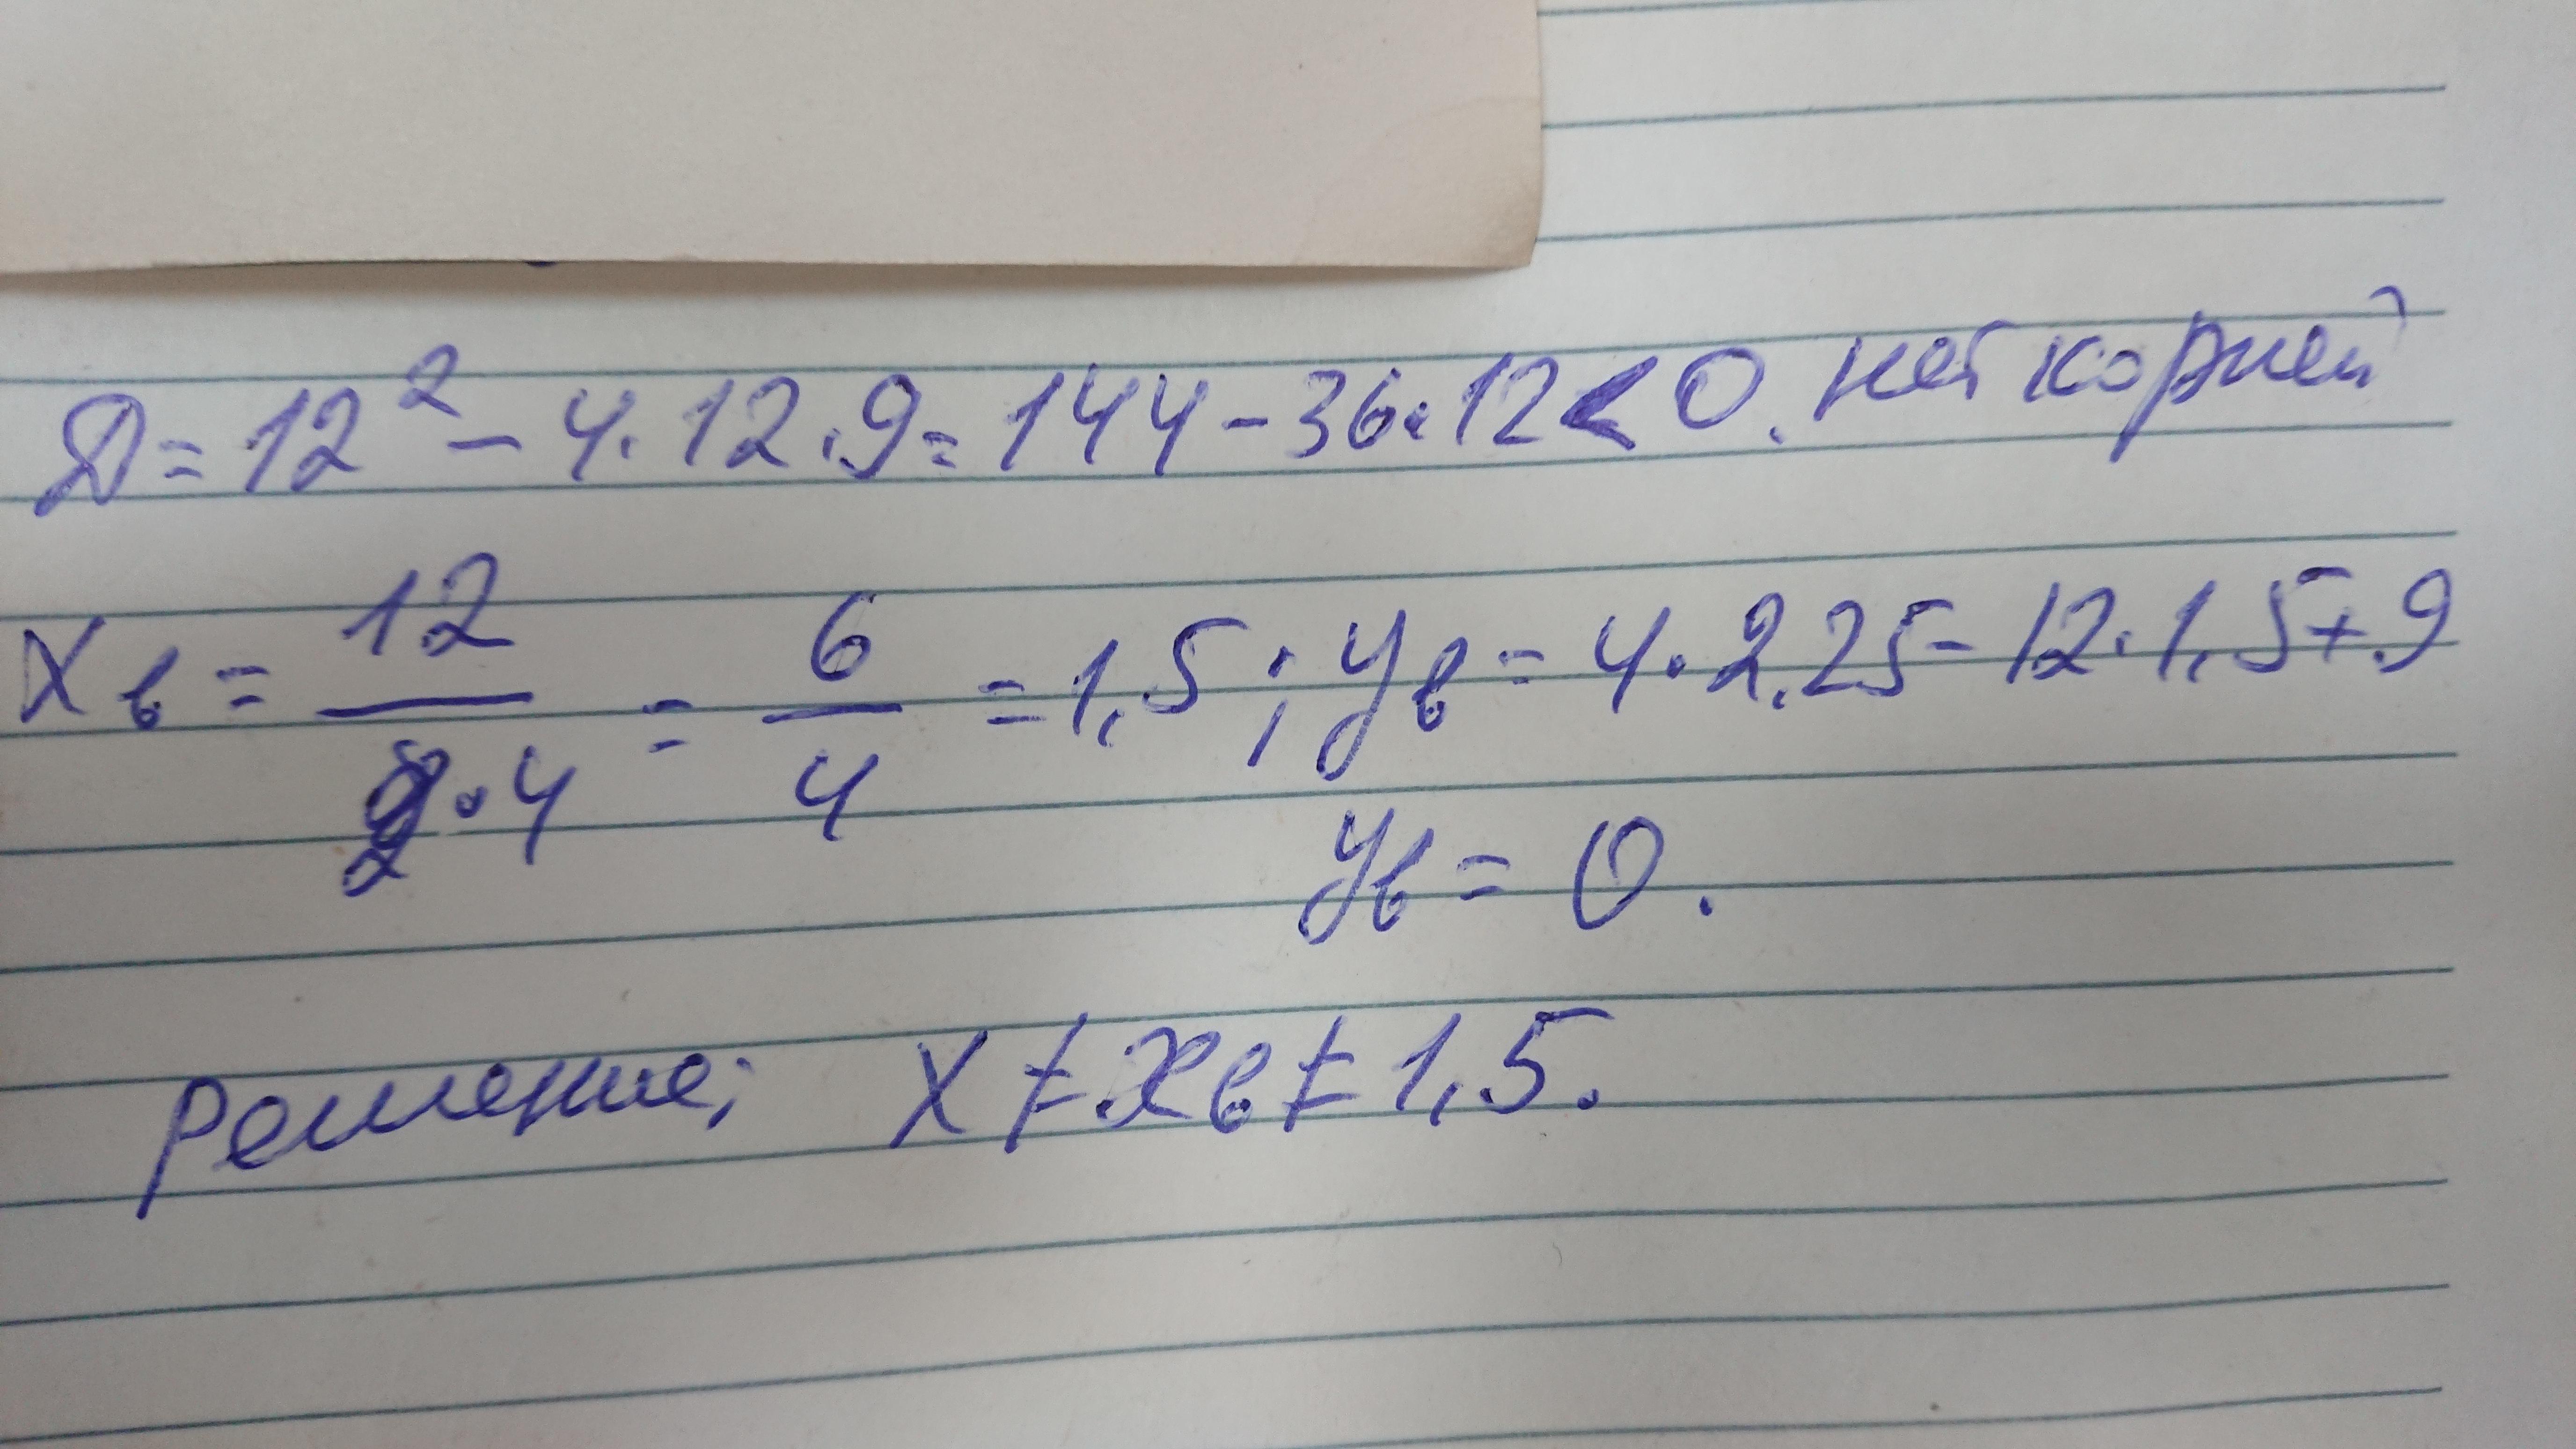 Д = 12² - 4·12·9 = 144 - 36·12 < 0. нет корней
xв = 12/2·4 = 6/4 = 1,5; yв = 4·2,25 - 12·1,5 + 9
yв = 0.
решение; x ≠ xв ≠ 1,5.